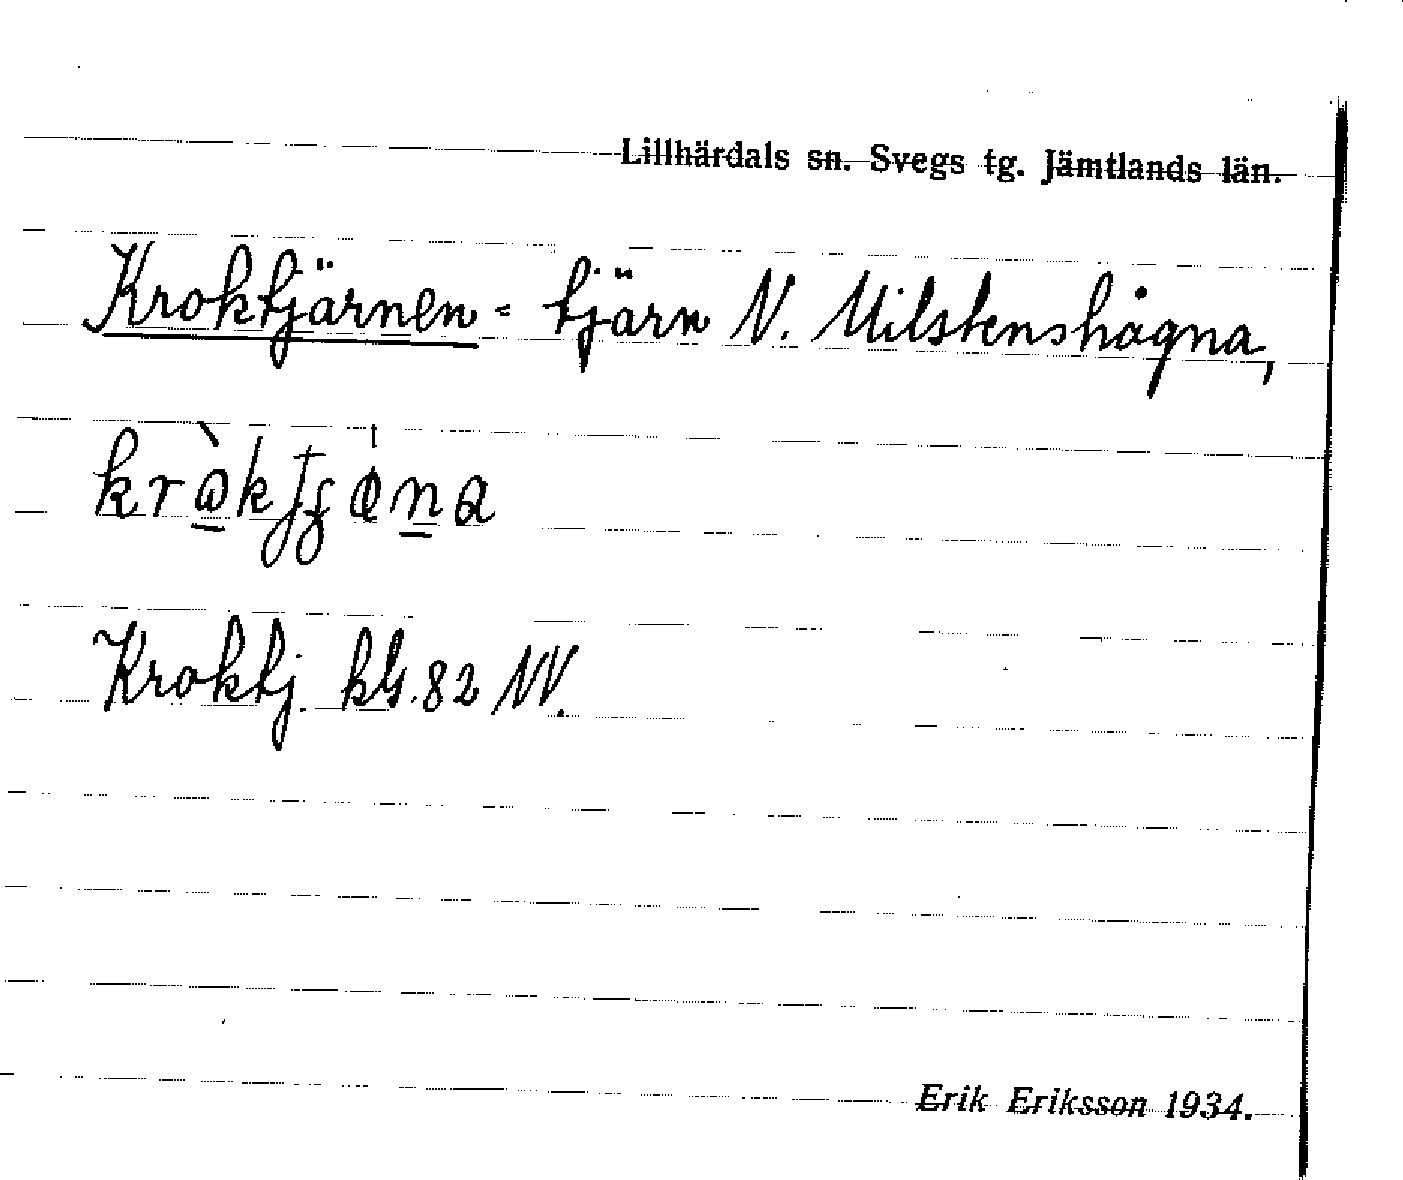 Lillhärdals sn. Svegs tg. Jämtlands län.
Kroktjärnen = tjärn N. Milstenshågna,
Kroktj. kbl. 82 NV.
Erik Eriksson 1934.